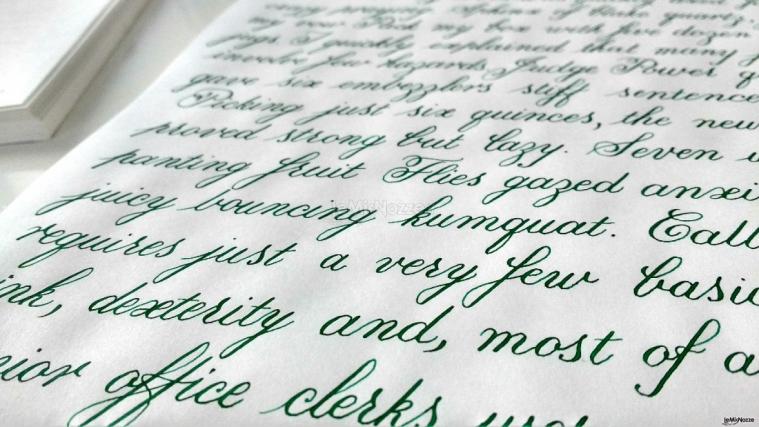 my vow Pack my box with five dozen
jugs I quickly explained that many j
involve few hazards Judge Power q
gave six embezzlers stiff sentence
Picking just six quinces, the new
proved strong but lazy. Seven w
panting fruit Flies gazed anxi
juicy bouncing kumquat. Call
requires just a very few basic
ink, dexterity and, most of a
nior office clerks
leMieNozze
leMieNozze